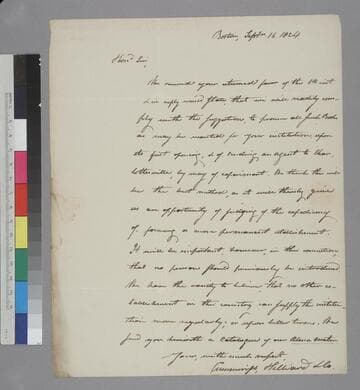 Boston, Septr 16 1824
Hond Sir,
We received your esteemed favor of the inst
& in reply would state that we will readily com-
ply with the suggestion, to procure all such Books
as may be wanted for your institution, upon
its first opening, & of sending an agent to Char-
lottesville, by way of experiment. We think this will
be the best method, as it will thereby give
us an opportunity of judging of the expediency
of forming a more permanent establishment.
It will be important, however, in this connection,
that no person should previously be introduced
We have the vanity to believe that no other es-
tablishment in this country can supply the institu-
tion more regularly, or upon better terms. We
send you herewith a Catalogue of our
Yours, with much respect
Cummings, Hilliard & Co.